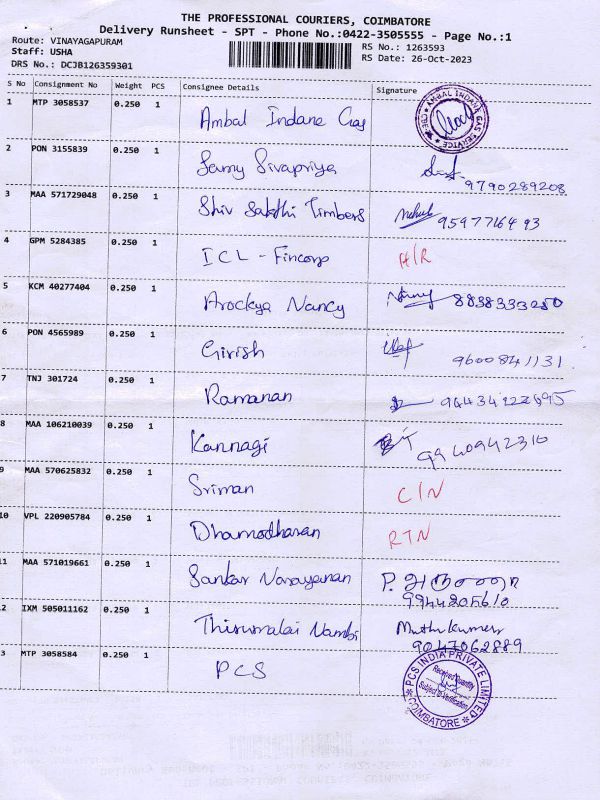 THE PROFESSIONAL COURIERS, COIMBATORE
Delivery Runsheet - SPT - Phone No.:0422-3505555 - Page No.:1
Route: VINAYAGAPURAM
RS No.: 1263593
Staff: USHA
RS Date: 26-Oct-2023
DRS No.: DCJB126359301
S No Consignment No Weight PCS Consignee Details Signature
1 MTP 3058537 0.250 1 Ambal Indane Gas AMBAL INDANE GAS SERVICE CBE
2 PON 3155839 0.250 1 Samy Sivapriya 9790289208
3 MAA 571729048 0.250 1 Shiv Sakthi Timbers 9597716493
4 GPM 5284385 0.250 1 ICL - Fincorp H/R
5 KCM 40277404 0.250 1 Arockya Nancy 8838333280
6 PON 4565989 0.250 1 Girish 9600841131
7 TNJ 301724 0.250 1 Ramanan
8 MAA 106210039 0.250 1 Kannagi 9940942310
9 MAA 570625832 0.250 1 Sriman C/N
10 VPL 220905784 0.250 1 Dhamodharan RTN
11 MAA 571019661 0.250 1 Sankar Narayanan P.
9944205610
2 IXM 505011162 0.250 1 Thirumalai Nambi Muthukumar
9047062889
3 MTP 3058584 0.250 1 PCS PCS INDIA PRIVATE LIMITED
Received Quantity
Subject to Verification
COIMBATORE